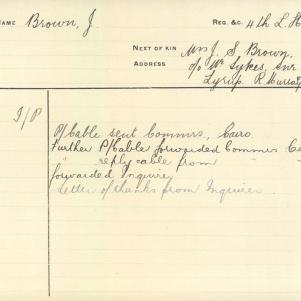 NAME Brown, J REG. &C. 4th L. H
NEXT OF KIN Mrs J. S. Brown.
ADDRESS c/o Mr Sykes, Snr
Lyrup R. Murray
I/P
P/Cable sent Commrs, Cairo
Further P/Cable forwarded Commrs Ca
" reply cable from "
forwarded Inquirer
Letter of thanks from Inquirer